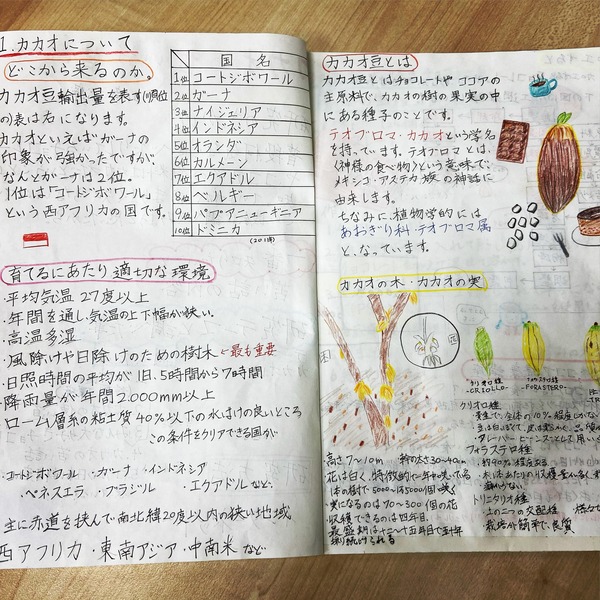 1.カカオについて
どこから来るのか。
カカオ豆輸出量を表す(順位)
の表は右になります。
カカオといえばガーナの
印象が強かったですが、
なんとガーナは2位。
1位は「コートジボワール」
という西アフリカの国です。
国名
1位 コートジボワール
2位 ガーナ
3位 ナイジェリア
4位 インドネシア
5位 オランダ
6位 カルメーン
7位 エクアドル
8位 ベルギー
9位 パプアニューギニア
10位 ドミニカ
育てるにあたり適切な環境
・平均気温 27度以上
・年間を通し、気温の上下幅が狭い。
・高温多湿
・風除けや日除けのための樹木 ←最も重要
・日照時間の平均が1日、5時間から7時間
・降雨量が年間2.000mm以上
・ローム層系の粘土質40%以下の水はけの良いところ
この条件をクリアできる国が
・コートジボワール ・ガーナ ・インドネシア
・ベネズエラ ・ブラジル ・エクアドル など。
主に赤道を挟んで南北緯20度以内の狭い地域
西アフリカ・東南アジア・中南米 など
カカオ豆とは
カカオ豆とはチョコレートやココアの
主原料で、カカオの樹の果実の中
にある種子のことです。
テオブロマ・カカオという学名
を持っています。テオブロマとは、
〈神様の食べ物〉という意味で、
メキシコ・アステカ族の神話に
由来します。
ちなみに、植物学的には
あおぎり科・テオブロマ属
と、なっています。
カカオの木・カカオの実
クリオロ種
-CRIOLLO-
フォラステロ種
-FORASTERO-
高さ7~10m 幹の太さ30~40cm
花は白く、特徴的で一年中咲いている
1本の樹で5000~15000個咲く
実になるのは70~300個の花
収穫できるのは四年目。
クリオロ種
フォラステロ種
トリニタリオ種
・上の二つの交配種
・栽培が簡単で、良質